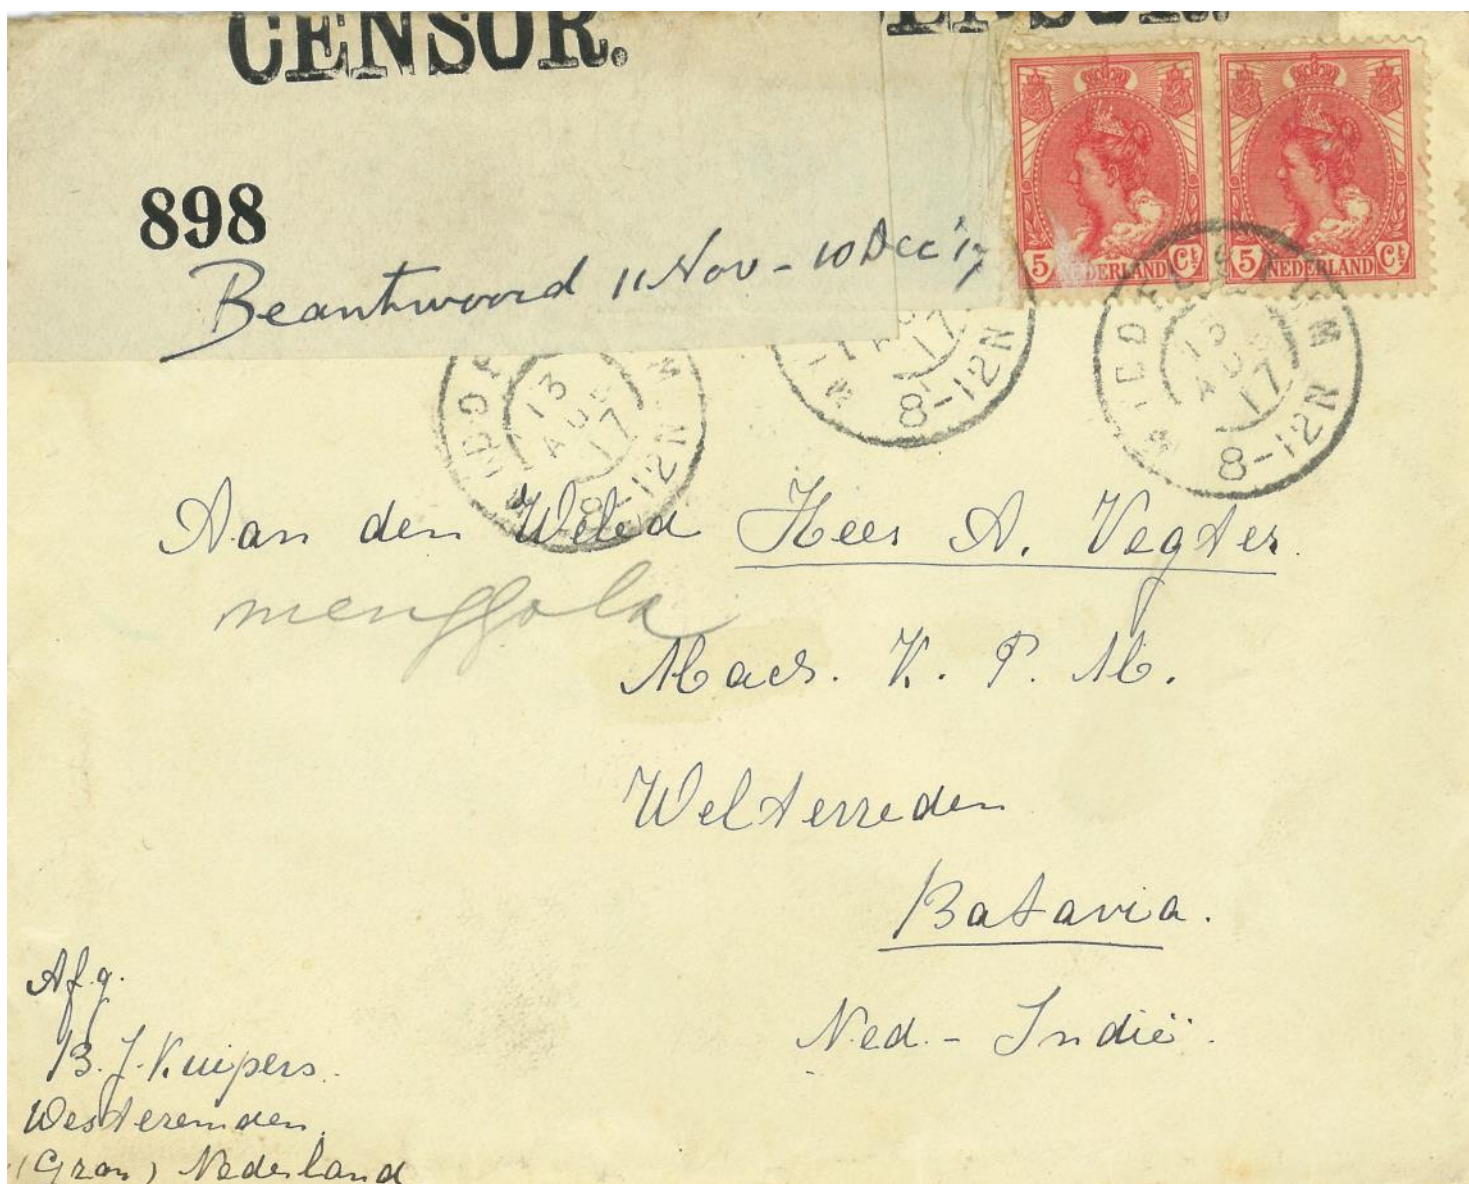 CENSOR.
ENSOR.
898
Beantwoord 11 Nov - 10 Dec '17
5 NEDERLAND Ct
5 NEDERLAND Ct
13
AUG
17
8-12N
17
8-12N
13
AUG
17
8-12N
Aan den Weled Heer A. Vegter.
menggala
Mach. K. P. M.
Welterreden
Batavia.
Ned. - Indië.
Afg.
B. J. Kuipers.
Westeremden.
(Gron) Nederland